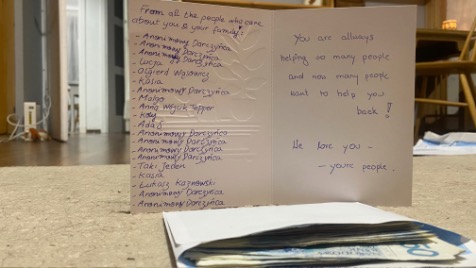 From all the people who care
about you & your family!
- Anonimowy Darczyńca
- Anonimowy Darczyńca
- Anonimowy Darczyńca
- Łucja
- Kasia
- Anonimowy Darczyńca
- Małgo
- Anna Wójcik
- Anonimowy Darczyńca
- Anonimowy Darczyńca
- Anonimowy Darczyńca
- Anonimowy Darczyńca
- Taki Jeden
- Kasia
- Łukasz
- Anonimowy Darczyńca
- Anonimowy Darczyńca
You are allways
helping so many people
and now many people
want to help you
back!
We love you -
- youre people.